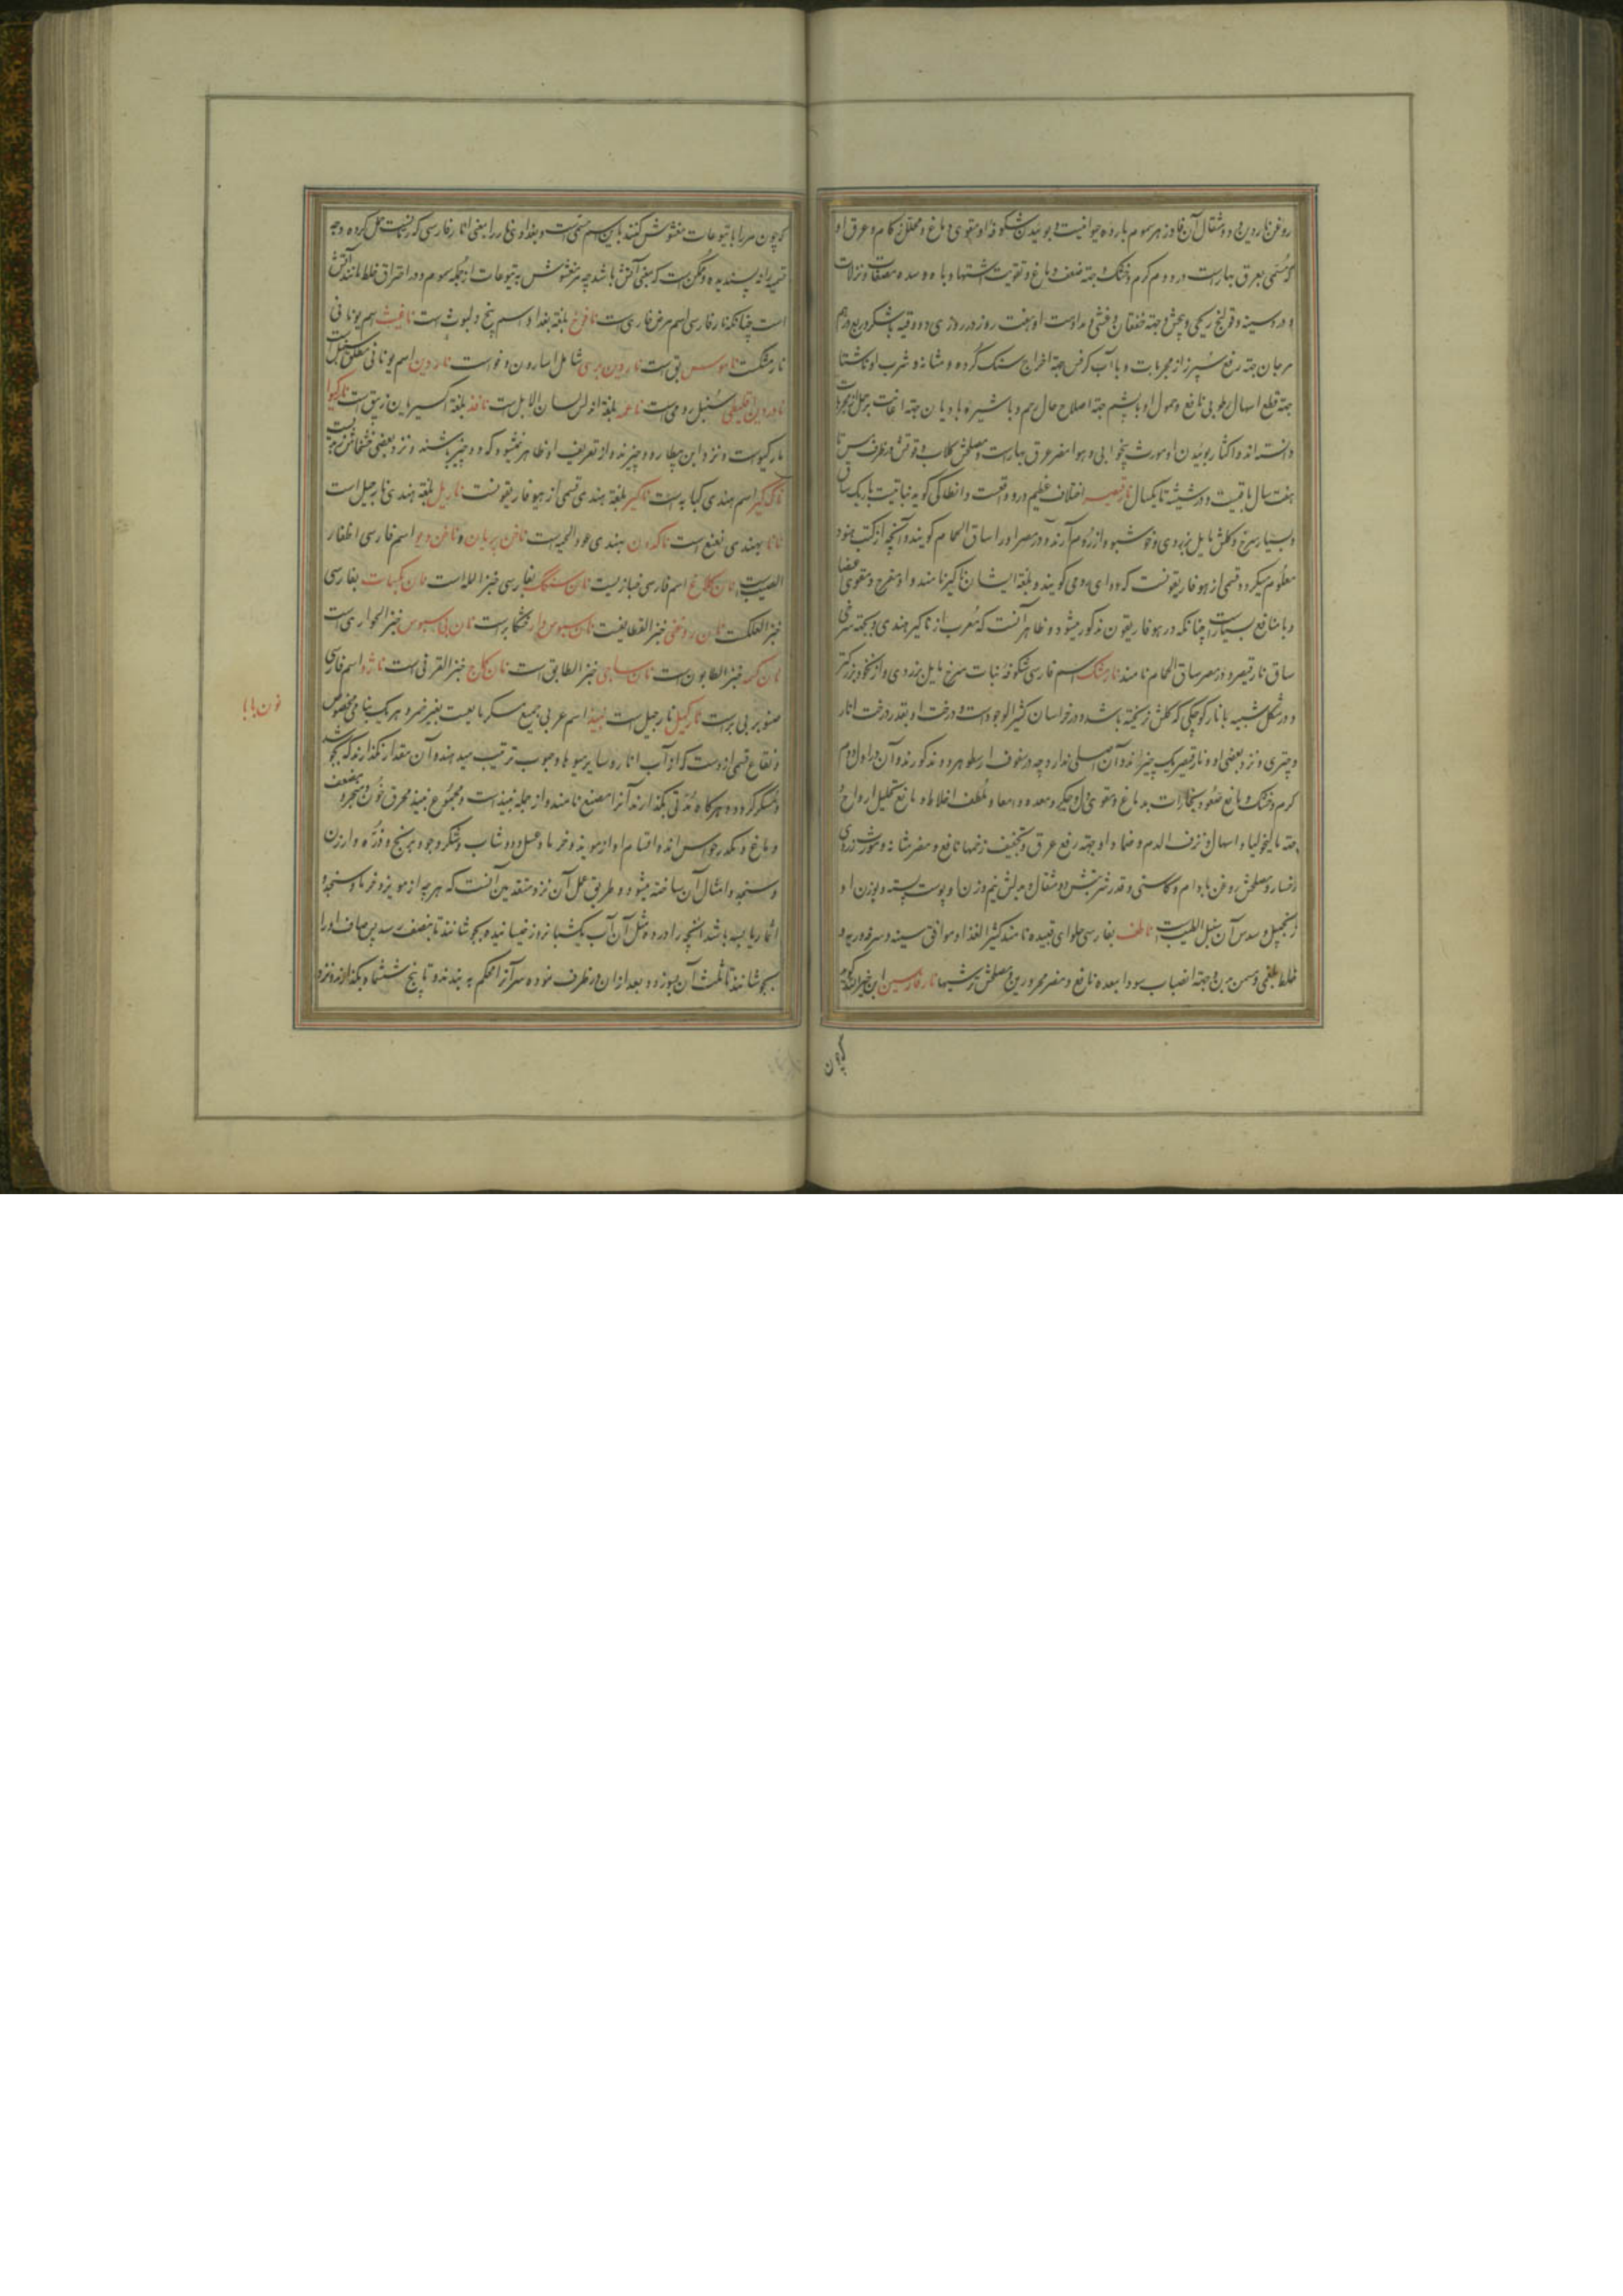 روغن ناردین و دو مثقال آن فادزهر سموم بارده حیوانیست و بوئیدن شکوفه او مقوی دماغ و محلل زکام و عرق او
که مسمی بعرق بهار است در دوم گرم و خشک و جهة ضعف دماغ و تقویت اشتها و باه و سده مصفات و نزلات
و درد سینه و قولنج ریحی و پیچش و جهة خفقان و غشی و مداومت او هفت روز در روزی دو وقیه با شکر و ربع درهم
مرجان جهة رفع سپرز از مجربات و با آب کرفس جهة اخراج سنگ گرده و مثانه و شرب او ناشتا
جهة قطع اسهال رطوبی نافع و حمول او با پشم جهة اصلاح حال رحم و با شیر مادیان جهة اعانت بر حمل از مجربات
دانسته اند و اکثار بوئیدن او مورث بیخوابی و هوا مضر عرق بهار است و مصلحش گلاب و قوتش در ظرف مس تا
هفت سال باقیست و در شیشه تا یکسال نارقیصر اختلاف عظیم درو واقعست و انطاکی گوید نباتیست باریک ساق
و بسیار سرخ و گلش مایل بزردی و خوشبو و از روم آرند و در مصر او را ساق الحمام گویند و آنچه از کتب هنود
معلوم میگردد قسمی از هوفاریقونست که دوای رومی گویند و بلغة ایشان ناگیر نامند و او مفرح و مقوی اعضا
و با منافع بسیار است چنانکه در هوفاریقون مذکور میشود و ظاهر آنست که معرب از ناگیر هندی و بجهة سرخی
ساق نارقیصر و در مصر ساق الحمام نامند نارمشک اسم فارسی شکوفه نبات سرخ مایل بزردی و از نخود بزرگتر
و در شکل شبیه بانار کوچکی که گلش نریخته باشد و در خراسان کثیر الوجود است و درخت او بقدر درخت انار
و چتری و نزد بعضی او و نارقیصر یک چیزاند و آن اصلی ندارد چه در سفوف ارسطو هر دو مذکورند و آن در اول دوم
گرم و خشک و مانع صعود بخارات بدماغ و مقوی دل و جگر و معده و امعا و ملطف اخلاط و مانع تحلیل ارواح و
جهة مالیخولیا و اسهال و نزف الدم و ضماد او جهة رفع عرق و تجفیف زخمها نافع و مضر مثانه و مورث زردی
رخسار و مصلحش روغن بادام و کاسنی و قدر شربتش دو مثقال و بدلش نیم وزن او پوست پسته و بوزن او
زنجبیل و سدس آن سنبل الطیب است ناطف بفارسی حلوای قبیده نامند کثیر الغذا و موافق سینه و سرفه و ریه و
خلط بلغمی و مسمن بدن و جهة انصباب سودا بمعده نافع و مضر محرورین و مصلحش ترشیها نار فارسین ابن جزله گوید
که چون
که چون مر را با یتوعات مغشوش کنند باین اسم مسمی است و بغدادی نار را بمعنی انار فارسی که رمانست حمل کرده و وجه
تسمیه را نه پسندیده و ممکن است که بمعنی آتش باشد چه مر مغشوش به یتوعات از جمله سموم و در احراق خلط مانند آتش
است چنانکه نار فارسی اسم مرض فاری است نافوخ بلغة بغداد اسم پنج دلبوث است نافیث اسم یونانی
نارمشکست ناموسس بق است ناردین بری شامل اسارون و فو است ناردین اسم یونانی مطلق سنبل است
ناردین اقلیطی سنبل رومی است ناعمه بلغة اندلس لسان الابل است نافذ بلغة اکسیر مابین زیبق است نارکیوا
مارکیوا است و نزد ابن بیطار دو چیزند و از تعریف او ظاهر نمیشود که دو چیز باشند و نزد بعضی خشخاش زبدیست
ناگ کیر اسم هندی کبابه است ناگیر بلغة هندی قسمی از هوفاریقونست ناریل بلغة هندی نارجیل است
نانا بهندی نعنع است ناگدون بهندی عود الحیه است ناخن پریان و ناخن دیو اسم فارسی اظفار
الطیبست نان کلاغ اسم فارسی خبازیست نان سنگک بفارسی خبز المله است نان بکسمات بفارسی
خبز الکعکست نان روغنی خبز القطایفست نان سبوس دار خشکار است نان بی سبوس خبز الحواری است
نان کمه خبز الطابون است نان ساجی خبز الطابق است نان کلاج خبز الفرنی است ناژو اسم فارسی
صنوبر بری است نارگیل نارجیل است نبیذ اسم عربی جمیع مسکر مایعست بغیر خمر و هر یک بنامی مخصوص
نون با با
و نقاع قسمی ازوست که از آب انار و سایر میوها و حبوب ترتیب میدهند و آن مقدار نگذارند که بجوشد
و مسکر گردد و هرگاه مدتی بگذارند آنرا مصنع نامند و از جمله نبیذ است و مجموع نبیذ محرق خون و مبخر و مضعف
دماغ و مکدر حواس اند و اقسام او از مویز و خرما و عسل و دوشاب و شکر و جو و برنج و ذره و ارزن
و سنجد و امثال آن ساخته میشود و طریق عمل آن نزد متقدمین آنست که هر چه از مویز و خرما و سنجد و
اثمار یابسه باشد آنچه را در ده مثل آن آب یکشبانروز خیسانیده بجوشانند تا بنصف رسد پس صاف او را
بجوشانند تا ثلث آن بسوزد و بعد از آن در ظرف نموده سر آنرا محکم به بندند و تا پنج ششماه بگذارند و نزد